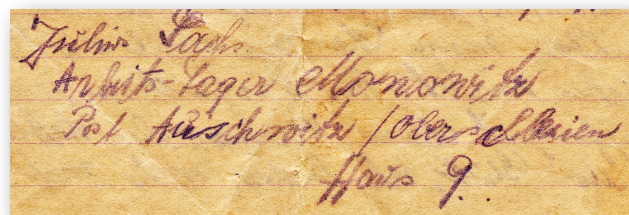 Julius Sachs
Arbeits-Lager Monowitz
Post Auschwitz / Oberschlesien
Haus 9.